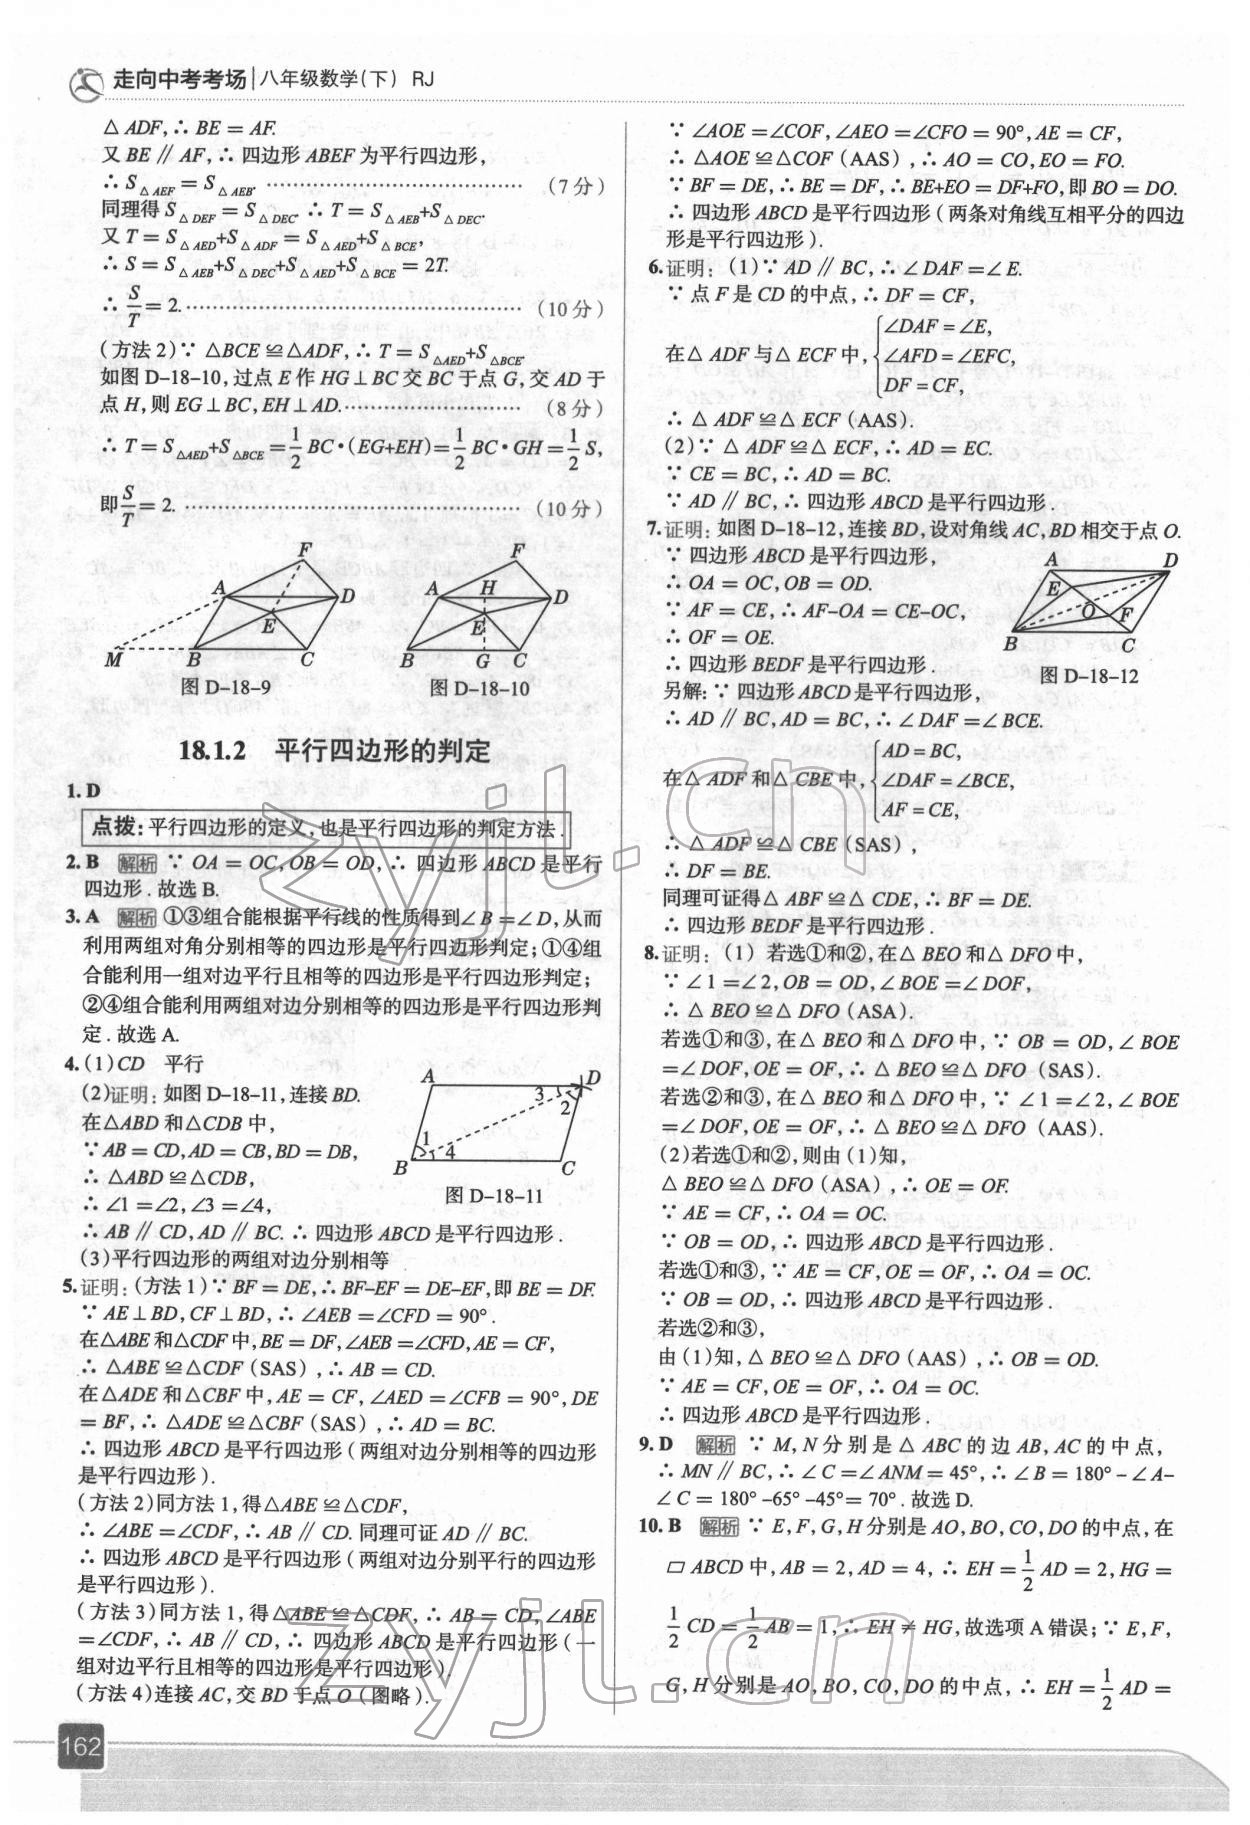 走向中考考场 八年级数学(下) RJ
△ADF,∴BE=AF.
又BE∥AF,∴四边形ABEF为平行四边形,
∴S△AEF=S△AEB.…………………………(7分)
同理得S△DEF=S△DEC.∴T=S△AEB+S△DEC.
又T=S△AED+S△ADF=S△AED+S△BCE,
∴S=S△AEB+S△DEC+S△AED+S△BCE=2T.
∴S/T=2.…………………………………(10分)
(方法2)∵△BCE≌△ADF,∴T=S△AED+S△BCE.
如图D-18-10,过点E作HG⊥BC交BC于点G,交AD于
点H,则EG⊥BC,EH⊥AD.…………………(8分)
∴T=S△AED+S△BCE=1/2 BC·(EG+EH)=1/2 BC·GH=1/2 S,
即S/T=2.…………………………………(10分)
F
A
D
E
M
B
C
图D-18-9
F
A
H
D
E
B
G
C
图D-18-10
18.1.2 平行四边形的判定
1.D
点拨:平行四边形的定义,也是平行四边形的判定方法.
2.B 解析 ∵OA=OC,OB=OD,∴四边形ABCD是平行
四边形.故选B.
3.A 解析 ①③组合能根据平行线的性质得到∠B=∠D,从而
利用两组对角分别相等的四边形是平行四边形判定;①④组
合能利用一组对边平行且相等的四边形是平行四边形判定;
②④组合能利用两组对边分别相等的四边形是平行四边形判
定.故选A.
4.(1)CD 平行
(2)证明:如图D-18-11,连接BD.
在△ABD和△CDB中,
∵AB=CD,AD=CB,BD=DB,
∴△ABD≌△CDB,
∴∠1=∠2,∠3=∠4,
∴AB∥CD,AD∥BC.∴四边形ABCD是平行四边形.
A
D
3
2
1
4
B
C
图D-18-11
(3)平行四边形的两组对边分别相等
5.证明:(方法1)∵BF=DE,∴BF-EF=DE-EF,即BE=DF.
∵AE⊥BD,CF⊥BD,∴∠AEB=∠CFD=90°.
在△ABE和△CDF中,BE=DF,∠AEB=∠CFD,AE=CF,
∴△ABE≌△CDF(SAS),∴AB=CD.
在△ADE和△CBF中,AE=CF,∠AED=∠CFB=90°,DE
=BF,∴△ADE≌△CBF(SAS),∴AD=BC.
∴四边形ABCD是平行四边形(两组对边分别相等的四边形
是平行四边形).
(方法2)同方法1,得△ABE≌△CDF,
∴∠ABE=∠CDF,∴AB∥CD.同理可证AD∥BC.
∴四边形ABCD是平行四边形(两组对边分别平行的四边形
是平行四边形).
(方法3)同方法1,得△ABE≌△CDF,∴AB=CD,∠ABE
=∠CDF,∴AB∥CD,∴四边形ABCD是平行四边形(一
组对边平行且相等的四边形是平行四边形).
(方法4)连接AC,交BD于点O(图略).
∵∠AOE=∠COF,∠AEO=∠CFO=90°,AE=CF,
∴△AOE≌△COF(AAS),∴AO=CO,EO=FO.
∵BF=DE,∴BE=DF,∴BE+EO=DF+FO,即BO=DO.
∴四边形ABCD是平行四边形(两条对角线互相平分的四边
形是平行四边形).
6.证明:(1)∵AD∥BC,∴∠DAF=∠E.
∵点F是CD的中点,∴DF=CF,
在△ADF与△ECF中,{∠DAF=∠E,
∠AFD=∠EFC,
DF=CF,
∴△ADF≌△ECF(AAS).
(2)∵△ADF≌△ECF,∴AD=EC.
∵CE=BC,∴AD=BC.
∵AD∥BC,∴四边形ABCD是平行四边形.
7.证明:如图D-18-12,连接BD,设对角线AC,BD相交于点O.
∵四边形ABCD是平行四边形,
∴OA=OC,OB=OD.
∵AF=CE,∴AF-OA=CE-OC,
∴OF=OE.
∴四边形BEDF是平行四边形.
A
D
E
O
F
B
C
图D-18-12
另解:∵四边形ABCD是平行四边形,
∴AD∥BC,AD=BC,∴∠DAF=∠BCE.
在△ADF和△CBE中,{AD=BC,
∠DAF=∠BCE,
AF=CE,
∴△ADF≌△CBE(SAS),
∴DF=BE.
同理可证得△ABF≌△CDE,∴BF=DE.
∴四边形BEDF是平行四边形.
8.证明:(1)若选①和②,在△BEO和△DFO中,
∵∠1=∠2,OB=OD,∠BOE=∠DOF,
∴△BEO≌△DFO(ASA).
若选①和③,在△BEO和△DFO中,∵OB=OD,∠BOE
=∠DOF,OE=OF,∴△BEO≌△DFO(SAS).
若选②和③,在△BEO和△DFO中,∵∠1=∠2,∠BOE
=∠DOF,OE=OF,∴△BEO≌△DFO(AAS).
(2)若选①和②,则由(1)知,
△BEO≌△DFO(ASA),∴OE=OF.
∵AE=CF,∴OA=OC.
∵OB=OD,∴四边形ABCD是平行四边形.
若选①和③,∵AE=CF,OE=OF,∴OA=OC.
∵OB=OD,∴四边形ABCD是平行四边形.
若选②和③,
由(1)知,△BEO≌△DFO(AAS),∴OB=OD.
∵AE=CF,OE=OF,∴OA=OC.
∴四边形ABCD是平行四边形.
9.D 解析 ∵M,N分别是△ABC的边AB,AC的中点,
∴MN∥BC,∴∠C=∠ANM=45°,∴∠B=180°-∠A-
∠C=180°-65°-45°=70°.故选D.
10.B 解析 ∵E,F,G,H分别是AO,BO,CO,DO的中点,在
▱ABCD中,AB=2,AD=4,∴EH=1/2 AD=2,HG=
1/2 CD=1/2 AB=1,∴EH≠HG,故选项A错误;∵E,F,
G,H分别是AO,BO,CO,DO的中点,∴EH=1/2 AD=
zyjl.cn
zyjl.cn
162